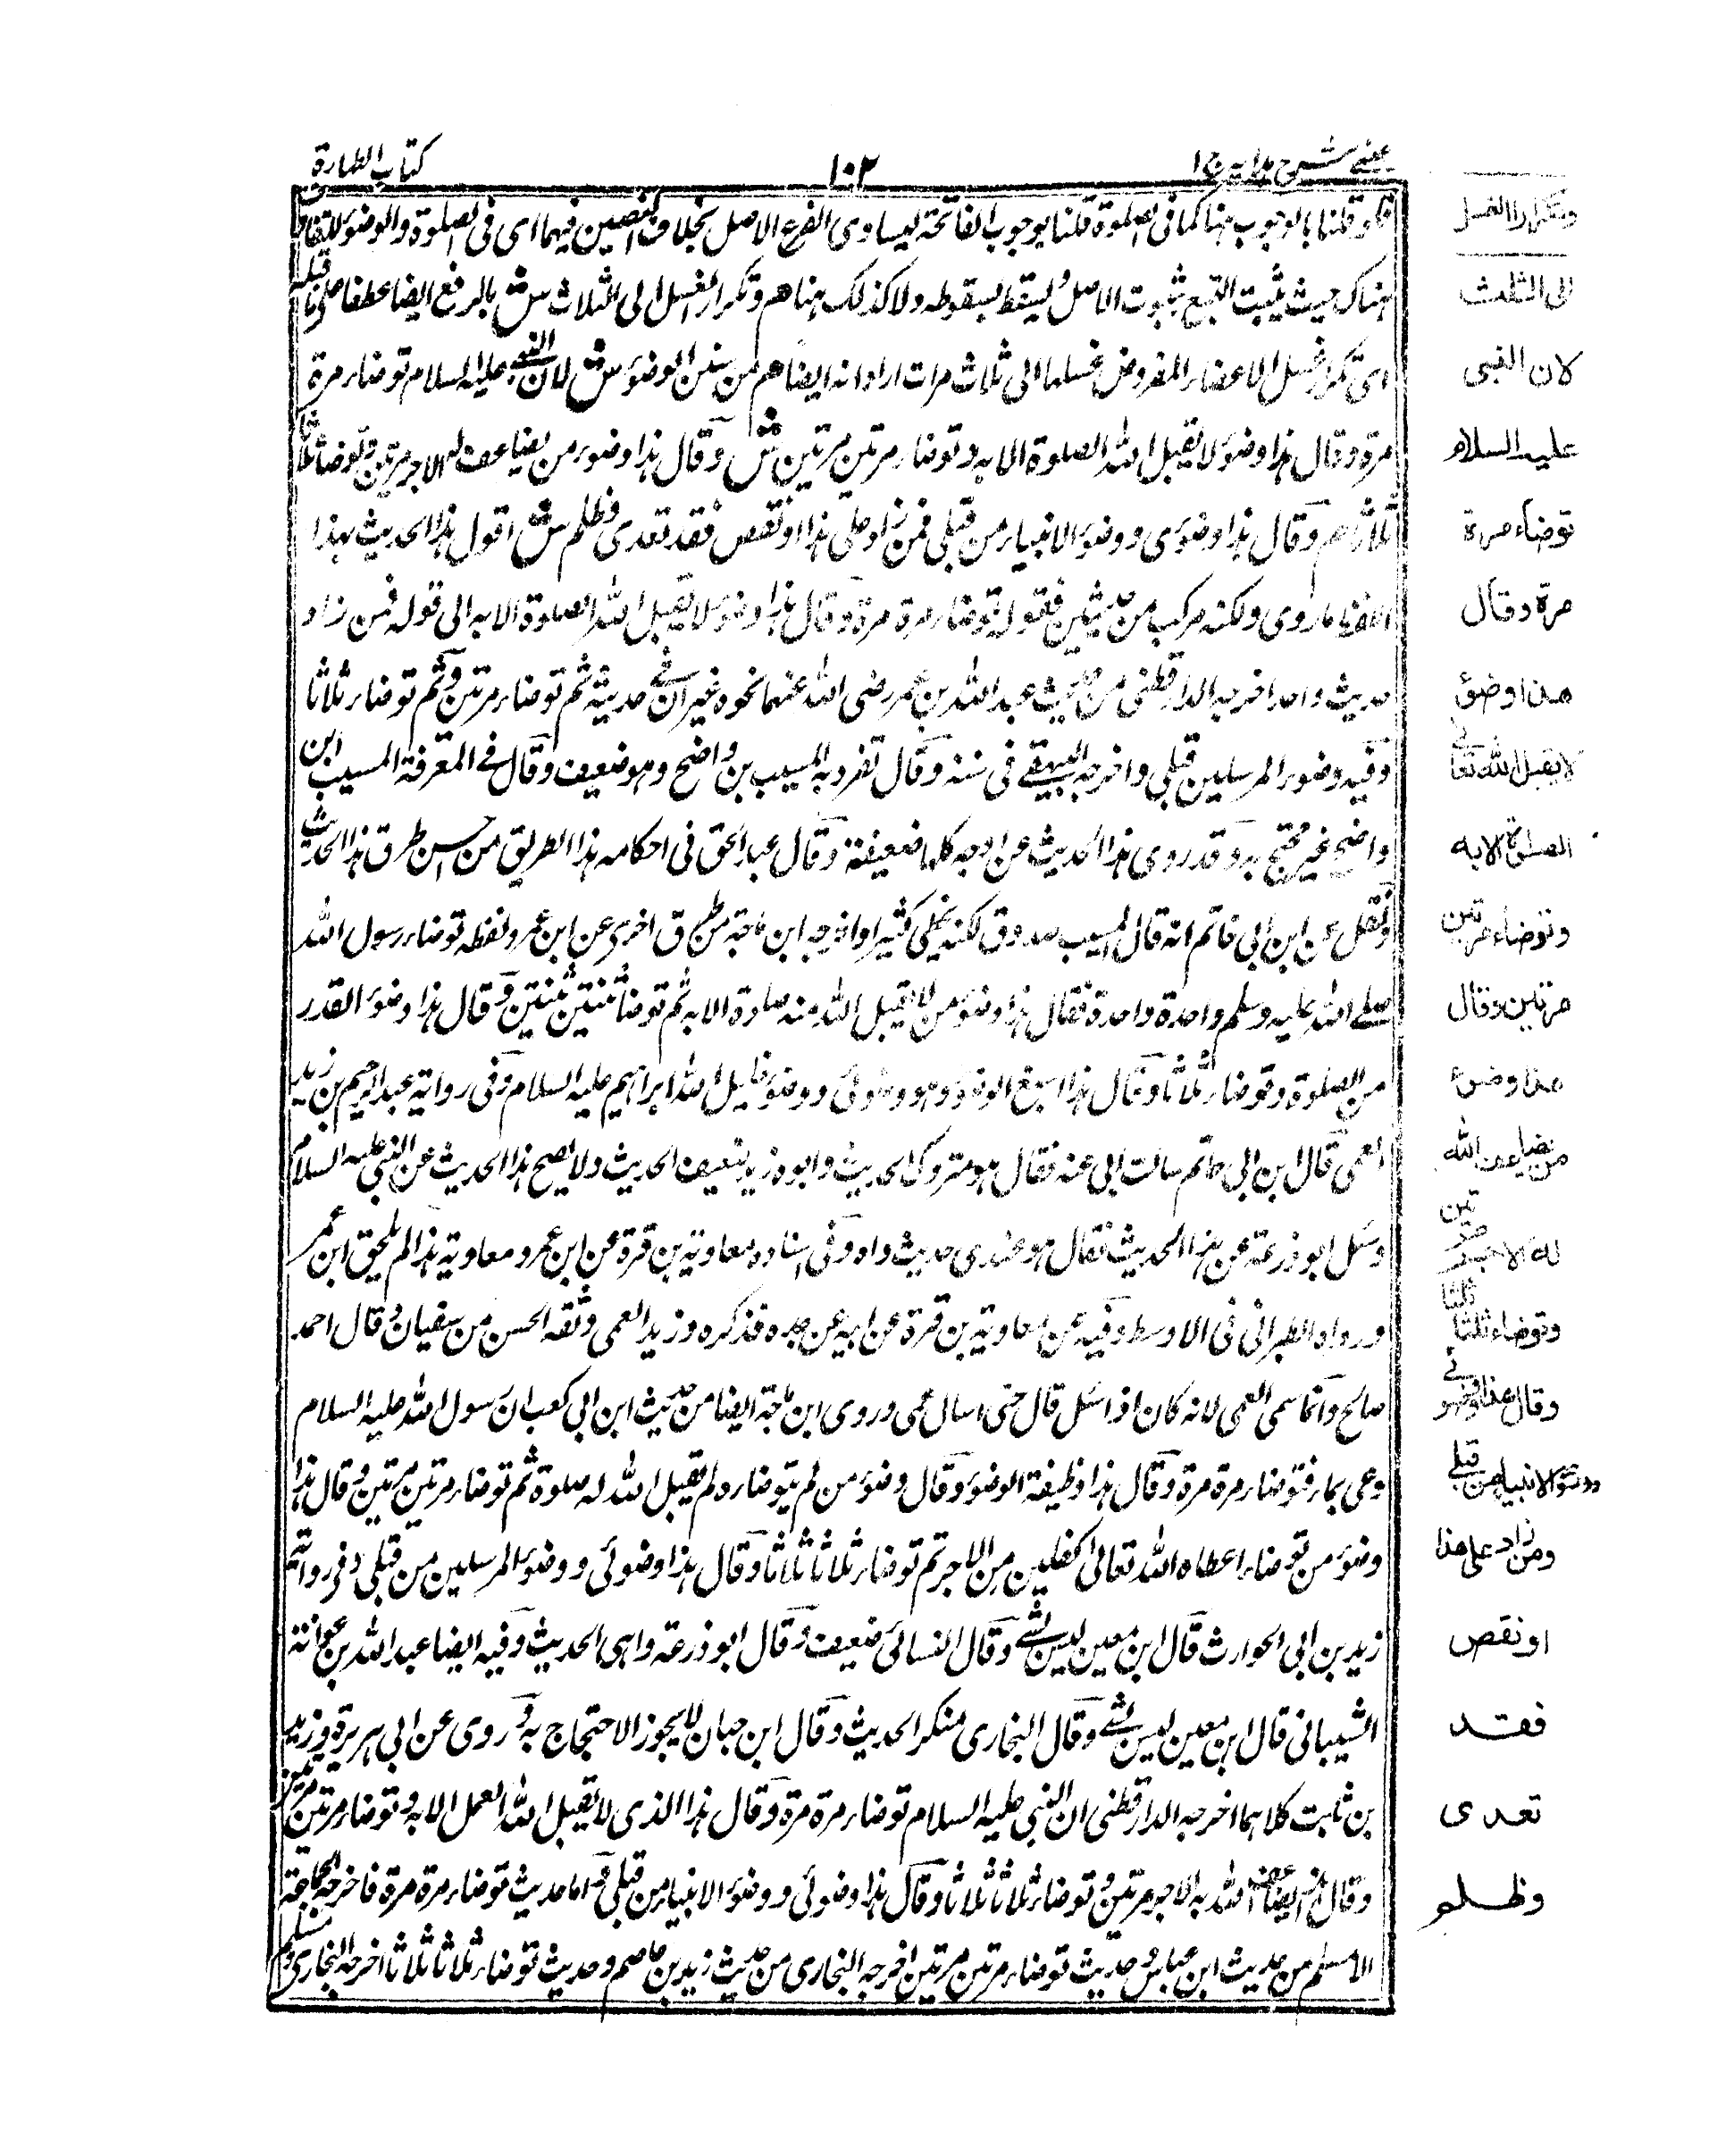 عینی شرح هدایه ج ا
١٠٢
کتاب الطهارة
فلو قلنا بالوجوب هنا كما فى الصلوة قلنا بوجوب الفاتحة ليساوى الفرع الاصل بخلاف النصين فيهما اى فى الصلوة والوضوء
هناك حيث يثبت التبع بثبوت الاصل ويسقط بسقوطه ولا كذلك هنا هم وتكرار الغسل الى الثلاث ش بالرفع ايضا عطفا على ما قبله
اى تكرار غسل الاعضاء المفروض غسلها الى ثلاث مرات اراد انه ايضا هم من سنن الوضوء ش لان النبى عليه السلام توضاء مرة
مرة وقال هذا وضوء لا يقبل الله الصلوة الا به وتوضاء مرتين مرتين ش وقال هذا وضوء من يضاعف له الاجر مرتين وتوضا ثلاثا
ثلاثا هم وقال هذا وضوئ ووضوء الانبياء من قبلى فمن زاد على هذا او نقص فقد تعدى وظلم ش اقول هذا الحديث بهذا
اللفظ ما روى ولكنه مركب من حديثين فقوله توضاء مرة مرة وقال هذا وضوء لا يقبل الله الصلوة الا به الى قوله فمن زاد
حديث واحد اخرجه الدارقطنى من حديث عبد الله بن عمر رضى الله عنهما نحوه غير ان فى حديثه ثم توضاء مرتين وثم توضاء ثلاثا
وفيه وضوء المرسلين قبلى واخرجه البيهقے فى سننه وقال تفرد به المسيب بن واضح وهو ضعيف وقال فے المعرفة المسيب ابن
واضح غير محتج به وقد روى هذا الحديث عن اوجه كلها ضعيفة وقال عبد الحق فى احكامه هذا الطريق من احسن طرق هذا الحديث
ونقل عن ابن ابى حاتم انه قال المسيب صدوق لكنه يخطى كثيرا واخرجه ابن ماجة من طرق اخرى عن ابن عمر ولفظه توضاء رسول الله
صلے الله عليه وسلم واحدة واحدة فقال هذا وضوء من لا يقبل الله منه صلوة الا به ثم توضا ثنتين ثنتين وقال هذا وضوء القدر
من الصلوة وتوضاء ثلاثا وقال هذا اسبغ الوضوء وهو وضوئ ووضوء خليل الله ابراهيم عليه السلام وفى رواية عبد الرحيم بن زيد
العمى قال ابن ابى حاتم سالت ابى عنه فقال هو متروك الحديث وابوه زيد ضعيف الحديث ولا يصح هذا الحديث عن النبى عليه السلام
وسئل ابو ذرعة عن هذا الحديث فقال هو عندى حديث واه وفى اسناده معاوية بن قرة عن ابن عمر ومعاوية هذا لم يلحق ابن عمر
ورواه الطبرانى فى الاوسط وفيه عن معاوية بن قرة عن ابيه عن جده فذكره وزيد العمى وثقه الحسن من سفيان وقال احمد
صالح وانما سمى العمى لانه كان اذا سئل قال حتى اسال عمى وروى ابن ماجة ايضا من حديث ابن ابى كعب ان رسول الله عليه السلام
دعى بماء فتوضاء مرة مرة وقال هذا وظيفة الوضوء وقال وضوء من لم يتوضاء ولم يقبل الله له صلوة ثم توضاء مرتين مرتين وقال هذا
وضوء من توضاء اعطاه الله تعالى كفلين من الاجر ثم توضاء ثلاثا ثلاثا وقال هذا وضوئى ووضوء المرسلين من قبلى وفى رواته
زيد بن ابى الحوارث قال ابن معين ليس بشے وقال النسائى ضعيف وقال ابو ذرعة واهى الحديث وفيه ايضا عبد الله بن عوانة
الشيبانى قال ابن معين ليس بشے وقال البخارى منكر الحديث وقال ابن حبان لا يجوز الاحتجاج به وروى عن ابى هريرة وزيد
بن ثابت كلاهما اخرجه الدارقطنى ان النبى عليه السلام توضاء مرة مرة وقال هذا الذى لا يقبل الله العمل الا به وتوضاء مرتين مرتين
وقال هذا يضاعف الله به الاجر مرتين وتوضاء ثلاثا ثلاثا وقال هذا وضوئى ووضوء الانبياء من قبلى واما حديث توضاء مرة مرة فاخرجه الجماعة
الا مسلم من حديث ابن عباس وحديث توضاء مرتين مرتين اخرجه البخارى من حديث زيد بن عاصم وحديث توضاء ثلاثا ثلاثا اخرجه البخارى ومسلم
وتكرار الغسل
الى الثلث
لان النبى
عليه السلام
توضاء مرة
مرة وقال
هذا وضوء
لا يقبل الله تعا
الصلوة الا به
وتوضاء مرتين
مرتين وقال
هذا وضوء
من يضاعف الله
له الاجر مرتين
وتوضاء ثلثا ثلثا
وقال هذا وضوئى
ووضوء الانبياء من قبلى
ومن زاد على هذا
او نقص
فقد
تعدى
وظلم